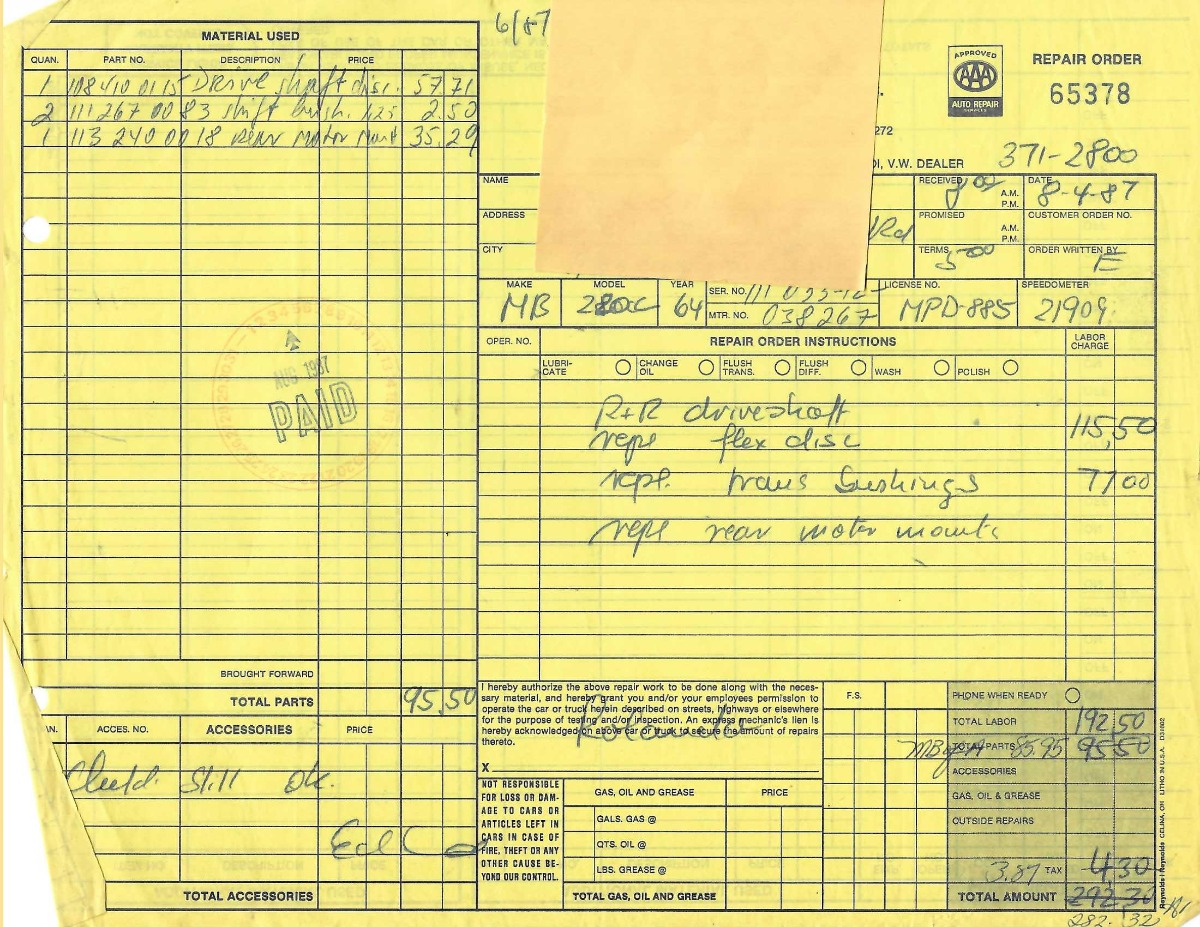 6/87
MATERIAL USED
QUAN. PART NO. DESCRIPTION PRICE
1 108 410 01 15 Drive shaft disc. 57.71
2 111 267 00 83 shift bush. 1.25 2.50
1 113 240 00 18 rear motor mount 35.29
BROUGHT FORWARD
TOTAL PARTS 95.50
AN. ACCES. NO. ACCESSORIES PRICE
still OK.
Ed
TOTAL ACCESSORIES
AUG 1987
PAID
APPROVED
AAA
AUTO REPAIR
SERVICES
REPAIR ORDER
65378
272
DI, V.W. DEALER 371-2800
NAME RECEIVED 8 00 A.M. P.M. DATE 8-4-87
ADDRESS Rd PROMISED A.M. P.M. CUSTOMER ORDER NO.
CITY TERMS 5 00 ORDER WRITTEN BY E
MAKE MODEL YEAR SER. NO. LICENSE NO. SPEEDOMETER
MB 64 MTR. NO. 038267 MPD-885 21909
OPER. NO. REPAIR ORDER INSTRUCTIONS LABOR CHARGE
LUBRI-CATE CHANGE OIL FLUSH TRANS. FLUSH DIFF. WASH POLISH
R+R driveshaft
repl flex disc 115,50
repl. trans bushings 77 00
repl rear motor mounts
I hereby authorize the above repair work to be done along with the neces-
sary material, and hereby grant you and/or your employees permission to
operate the car or truck herein described on streets, highways or elsewhere
for the purpose of testing and/or inspection. An express mechanic's lien is
hereby acknowledged on above car or truck to secure the amount of repairs
thereto.
X
NOT RESPONSIBLE
FOR LOSS OR DAM-
AGE TO CARS OR
ARTICLES LEFT IN
CARS IN CASE OF
FIRE, THEFT OR ANY
OTHER CAUSE BE-
YOND OUR CONTROL.
GAS, OIL AND GREASE PRICE
GALS. GAS @
QTS. OIL @
LBS. GREASE @
TOTAL GAS, OIL AND GREASE
F.S. PHONE WHEN READY
TOTAL LABOR 192,50
TOTAL PARTS 85.95 95.50
ACCESSORIES
GAS, OIL & GREASE
OUTSIDE REPAIRS
3.87 TAX 4.30
TOTAL AMOUNT 292.30
282.32
Reynolds & Reynolds CELINA, OH LITHO IN U.S.A.